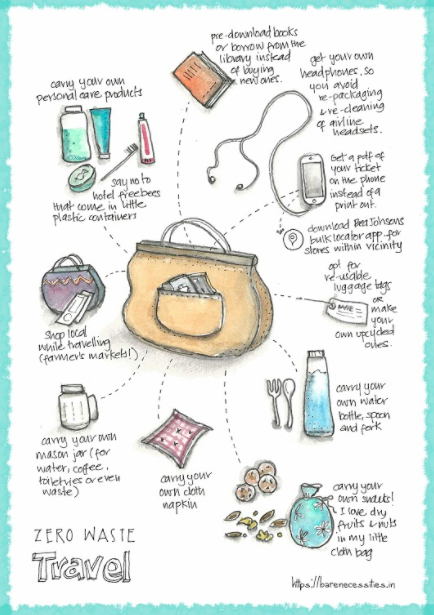 pre-download books
or borrow from the
library instead
of buying
new ones.
get your own
headphones, so
you avoid
re-packaging
& re-cleaning
of airline
headsets.
carry your own
personal care products
say no to
hotel freebees
that come in little
plastic containers
Get a pdf of
your ticket
on the phone
instead of a
print out.
download Bea Johnsons
bulk locator app for
stores within vicinity
opt for
re-usable
luggage tags
or
make
your
own upcycled
ones.
NAME
shop local
while travelling
(farmer's markets!)
carry your
own water
bottle, spoon
and fork
carry your own
mason jar (for
water, coffee,
toiletries or even
waste)
carry your
own cloth
napkin
carry your
own snacks!
I love dry
fruits & nuts
in my little
cloth bag
ZERO WASTE
Travel
https://barenecessties.in